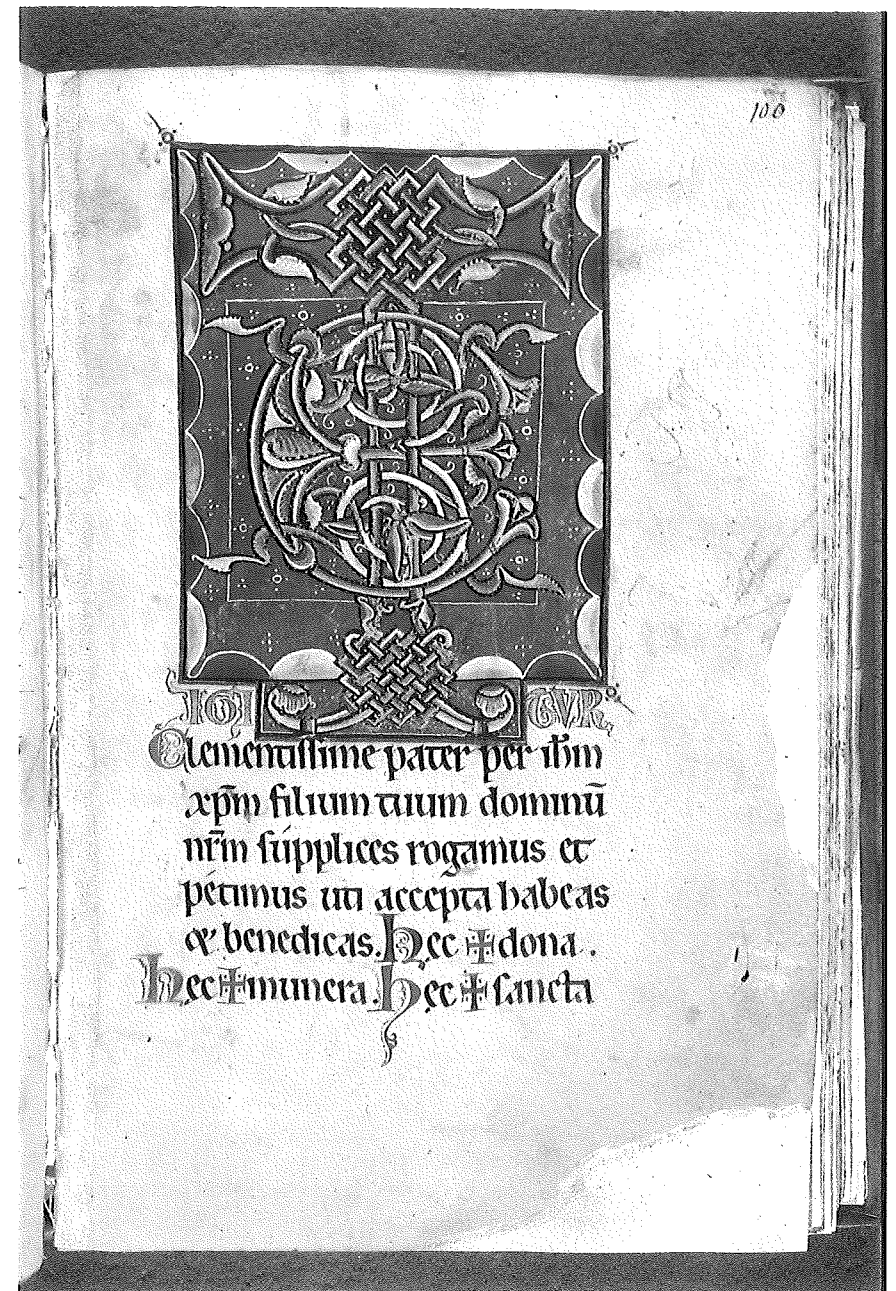 100
TE
IGI TUR
Clementissime pater per ihm̅
xp̅m filium tuum dominū
nr̅m supplices rogamus et
petimus uti accepta habeas
& benedicas. hęc ✠ dona.
hęc ✠ munera. hęc ✠ sancta